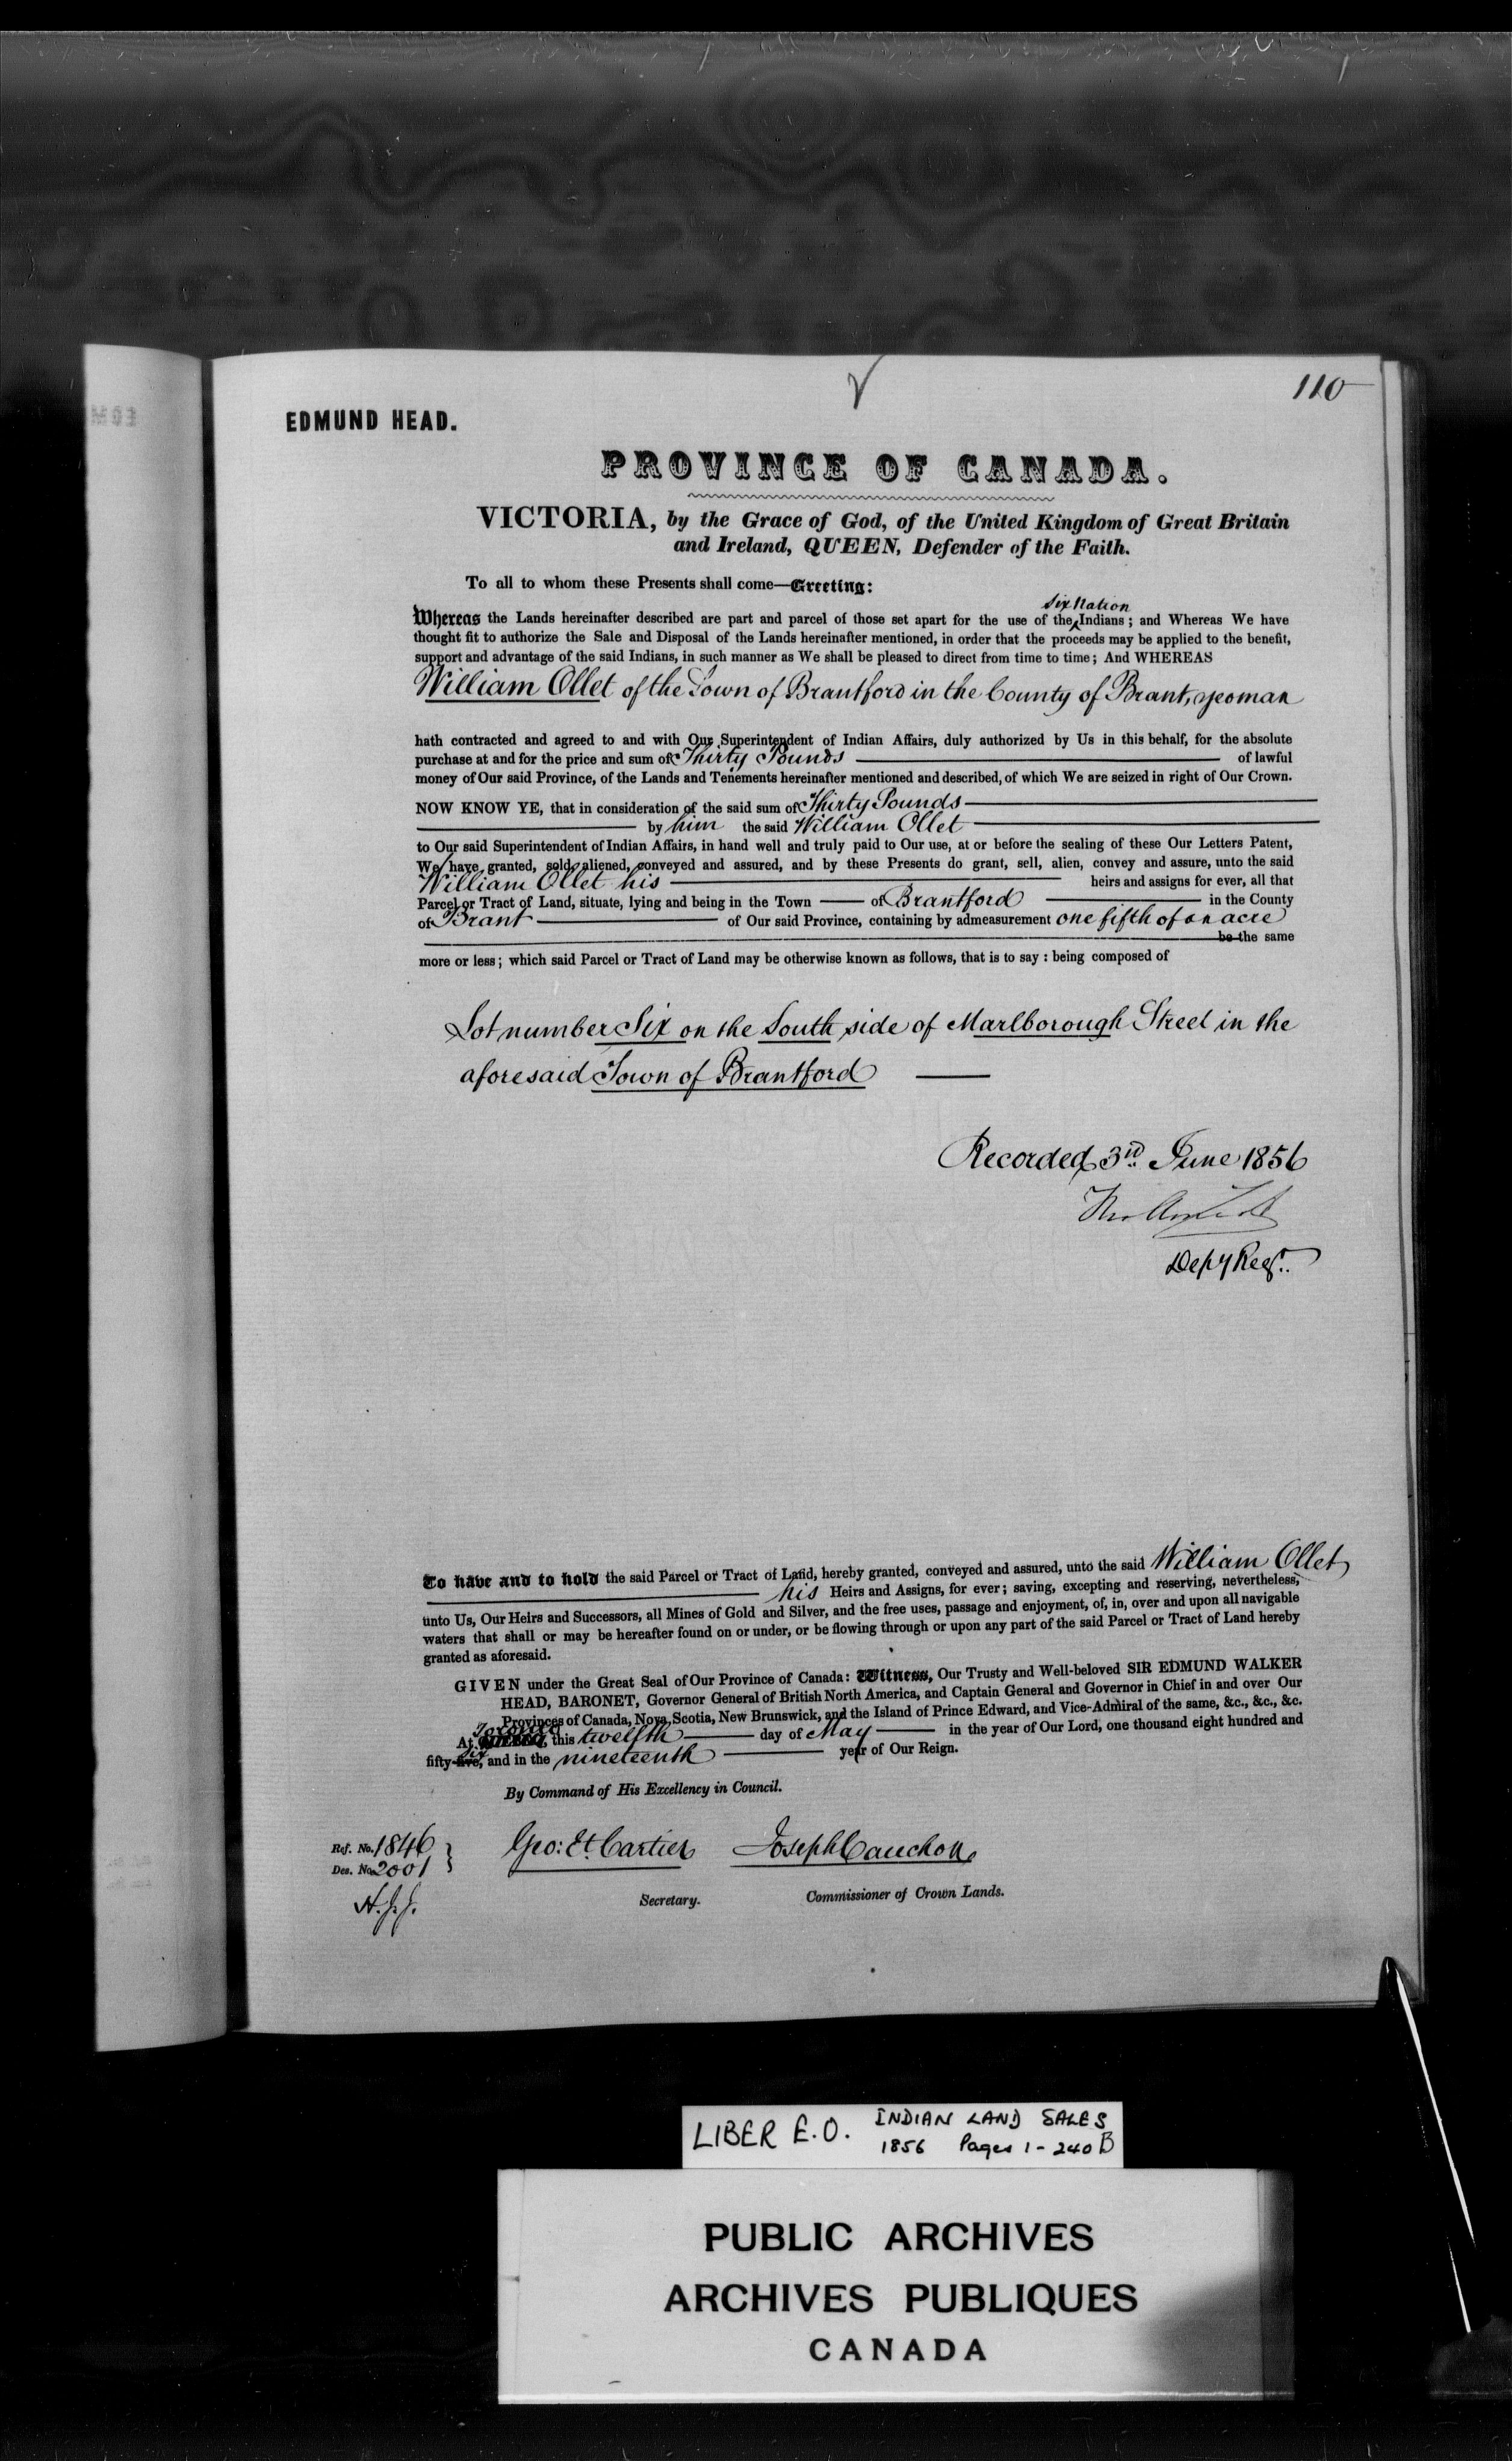 110
EDMUND HEAD.
PROVINCE OF CANADA.
VICTORIA, by the Grace of God, of the United Kingdom of Great Britain
and Ireland, QUEEN, Defender of the Faith.
To all to whom these Presents shall come—Greeting:
Six Nation
Whereas the Lands hereinafter described are part and parcel of those set apart for the use of the Indians; and Whereas We have
thought fit to authorize the Sale and Disposal of the Lands hereinafter mentioned, in order that the proceeds may be applied to the benefit,
support and advantage of the said Indians, in such manner as We shall be pleased to direct from time to time; And WHEREAS
William Ollet of the Town of Brantford in the County of Brant, yeoman
hath contracted and agreed to and with Our Superintendent of Indian Affairs, duly authorized by Us in this behalf, for the absolute
purchase at and for the price and sum of Thirty Pounds of lawful
money of Our said Province, of the Lands and Tenements hereinafter mentioned and described, of which We are seized in right of Our Crown.
NOW KNOW YE, that in consideration of the said sum of Thirty Pounds
by him the said William Ollet
to Our said Superintendent of Indian Affairs, in hand well and truly paid to Our use, at or before the sealing of these Our Letters Patent,
We have granted, sold, aliened, conveyed and assured, and by these Presents do grant, sell, alien, convey and assure, unto the said
William Ollet his heirs and assigns for ever, all that
Parcel or Tract of Land, situate, lying and being in the Town of Brantford in the County
of Brant of Our said Province, containing by admeasurement one fifth of an acre
be the same
more or less; which said Parcel or Tract of Land may be otherwise known as follows, that is to say: being composed of
Lot number Six on the South side of Marlborough Street in the
aforesaid Town of Brantford
Recorded 3rd. June 1856
Depy Regr.
To have and to hold the said Parcel or Tract of Land, hereby granted, conveyed and assured, unto the said William Ollet
his Heirs and Assigns, for ever; saving, excepting and reserving, nevertheless,
unto Us, Our Heirs and Successors, all Mines of Gold and Silver, and the free uses, passage and enjoyment, of, in, over and upon all navigable
waters that shall or may be hereafter found on or under, or be flowing through or upon any part of the said Parcel or Tract of Land hereby
granted as aforesaid.
GIVEN under the Great Seal of Our Province of Canada: Witness, Our Trusty and Well-beloved SIR EDMUND WALKER
HEAD, BARONET, Governor General of British North America, and Captain General and Governor in Chief in and over Our
Provinces of Canada, Nova Scotia, New Brunswick, and the Island of Prince Edward, and Vice-Admiral of the same, &c., &c., &c.
At Toronto, this twelfth day of May in the year of Our Lord, one thousand eight hundred and
fifty-five, six and in the nineteenth year of Our Reign.
By Command of His Excellency in Council.
Ref. No. 1846
Des. No. 2001
Geo: Et. Cartier Joseph Cauchon
Secretary. Commissioner of Crown Lands.
LIBER E.O. INDIAN LAND SALES
1856 Pages 1 - 240 B
PUBLIC ARCHIVES
ARCHIVES PUBLIQUES
CANADA